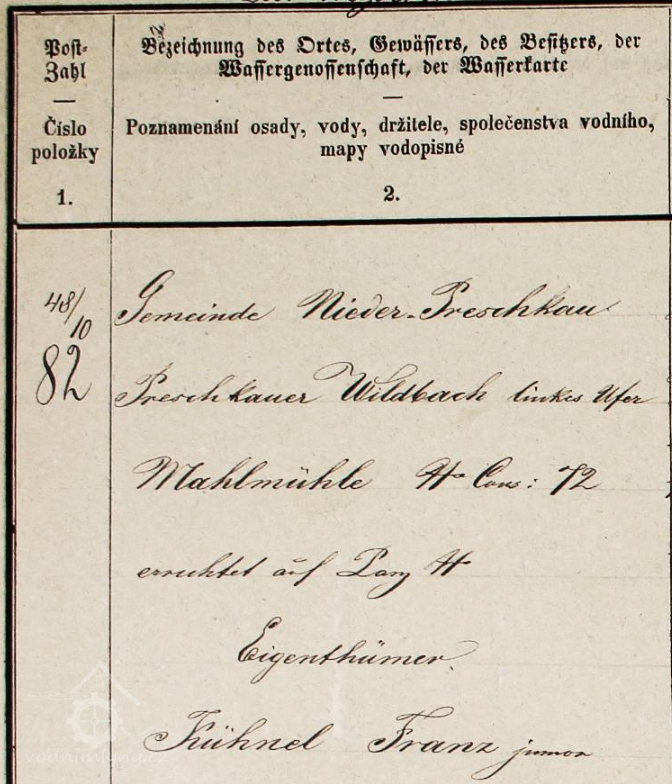 Post-
Zahl
Číslo
položky
1.
Bezeichnung des Ortes, Gewässers, des Besitzers, der
Wassergenossenschaft, der Wasserkarte
Poznamenání osady, vody, držitele, společenstva vodního,
mapy vodopisné
2.
48/10
82
Gemeinde Nieder-Preschkau
Preschkauer Wildbach linkes Ufer
Mahlmühle N Cons: 72
errichtet auf Parz N
Eigenthümer
Kühnel Franz junior
vodnimlyny.cz